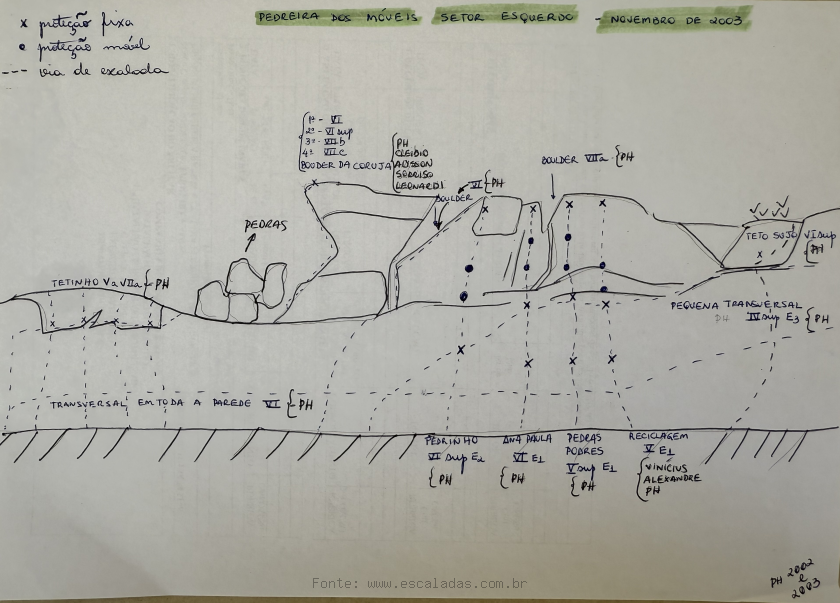 x proteção fixa
• proteção móvel
--- via de escalada
PEDREIRA DOS MÓVEIS SETOR ESQUERDO - NOVEMBRO DE 2003
1ª - VI
2ª - VI sup
3ª - VIIb
4ª VIIc
BOUDER DA CORUJA
PH
CLEIDIO
ALYSSON
SORRISO
LEONARDI
VI PH
BOULDER
BOULDER VIIa - PH
PEDRAS
TETINHO Va VIIa PH
TETO SUJO VI sup
PH
PEQUENA TRANSVERSAL
PH IV sup E3 PH
TRANSVERSAL EM TODA A PAREDE VI PH
PEDRINHO
VI sup E2
PH
ANA PAULA
VI E1
PH
PEDRAS
PODRES
V sup E1
PH
RECICLAGEM
V E1
VINÍCIUS
ALEXANDRE
PH
PH 2002
e
2003
Fonte: www.escaladas.com.br